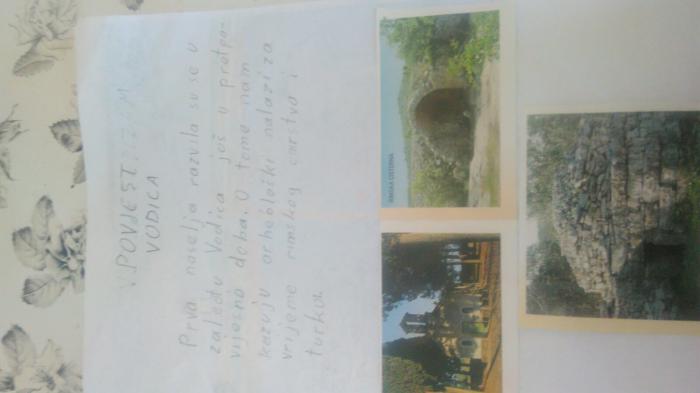 POVJEST
VODICA
Prva naselja razvila su se u
zaleđu Vodica još u pretpo-
vijesno doba. O tome nam
kazuju arheološki nalazi za
vrijeme rimskog carstva i
turka.
RIMSKA CISTERNA